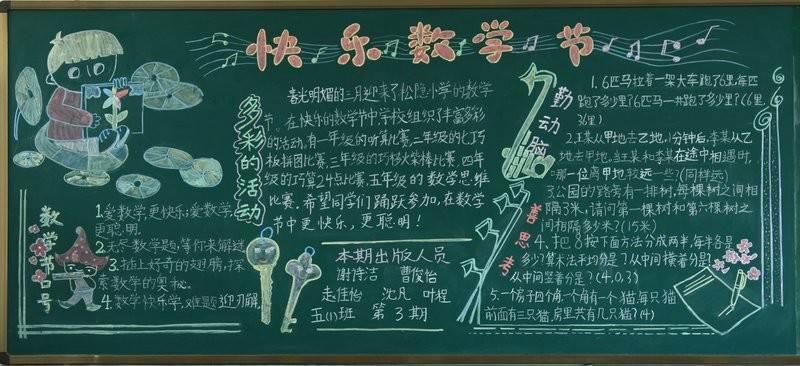 快乐数学节
多彩的活动
春光明媚的三月迎来了松隐小学的数学
节。在快乐的数学节中学校组织了丰富多彩
的活动,有一年级的听算比赛,二年级的七巧
板拼图比赛,三年级的巧移火柴棒比赛,四年
级的巧算24点比赛,五年级的数学思维
比赛。希望同学们踊跃参加,在数学
节中更快乐,更聪明!
数学节口号
1.爱数学,更快乐;爱数学,
更聪明。
2.无尽数学题,等你来解谜
3.插上好奇的翅膀,探
索数学的奥秘。
4.数学快乐学,难题迎刃解。
本期出版人员
谢诗洁 曹俊怡
走佳怡 沈凡 叶程
五(1)班 第3期
勤动脑
善思考
1.6匹马拉着一架大车跑了6里,每匹
跑了多少里?6匹马一共跑了多少里?(6里,
36里)
2.王某从甲地去乙地,1分钟后,李某从乙
地去甲地,当王某和李某在途中相遇时,
哪一位离甲地较远一些?(同样远)
3.公园的路旁有一排树,每棵树之间相
隔3米,请问第一棵树和第六棵树之
间相隔多少米?(15米)
4.把8按下面方法分成两半,每半各是
多少?算术法平均分是?从中间横着分是?
从中间竖着分是?(4,0,3)
5.一个房子四个角,一个角有一个猫,每只猫
前面有三只猫,房里共有几只猫?(4)